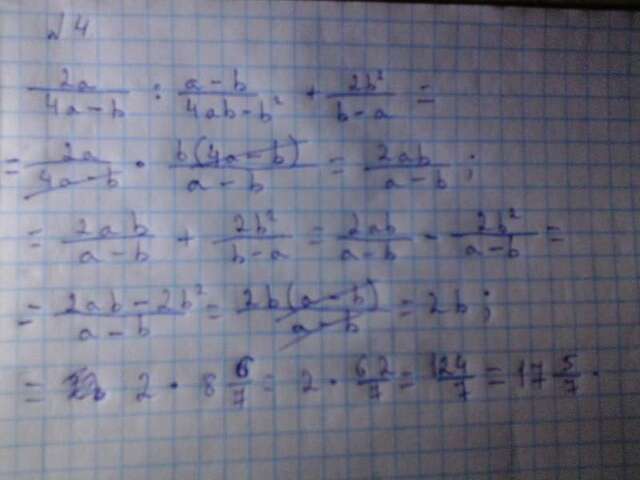 √4
2a/(4a-b) : (a-b)/(4ab-b²) + 2b²/(b-a) =
= 2a/(4a-b) · b(4a-b)/(a-b) = 2ab/(a-b) ;
= 2ab/(a-b) + 2b²/(b-a) = 2ab/(a-b) - 2b²/(a-b) =
= (2ab-2b²)/(a-b) = 2b(a-b)/(a-b) = 2b ;
= 2 · 8 6/7 = 2 · 62/7 = 124/7 = 17 5/7 .